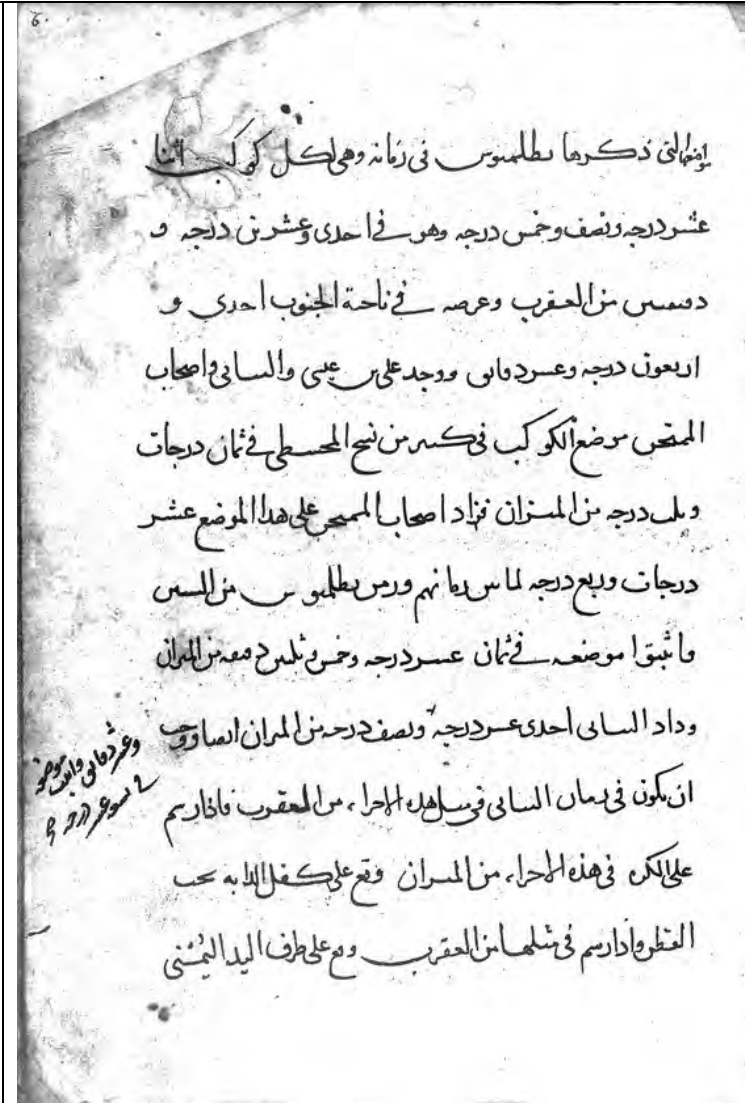 مواضعها التي ذكرها بطلميوس في زمانه وهي لكل كوكب اثنا
عشر درجه ونصف وخمس درجه وهو في احدى وعشرين درجه و
دقيقتين من العقرب وعرضه في ناحية الجنوب احدى و
اربعون درجه وعشر دقائق ووجد علي بن عيسى والبتاني واصحاب
الممتحن موضع الكوكب في كثير من نسخ المجسطي في ثمان درجات
وثلث درجه من الميزان فزاد اصحاب الممتحن على هذا الموضع عشر
درجات وربع درجه لما بين زمانهم وزمن بطلميوس من السنين
واثبتوا موضعه في ثمان عشر درجه وخمس وثلثين دقيقه من الميزان
وزاد البتاني احدى عشر درجه ونصف درجه من الميزان ايضا ووجب
ان يكون في زمان البتاني في مثل هذه الاجزاء من العقرب فاذا رسم
على الكره في هذه الاجزاء من الميزان وقع على كفل الدابه تحت
القنطورس واذا رسم في مثلها من العقرب وقع على طرف اليد اليمنى
وعشر دقائق واثبت موضعه